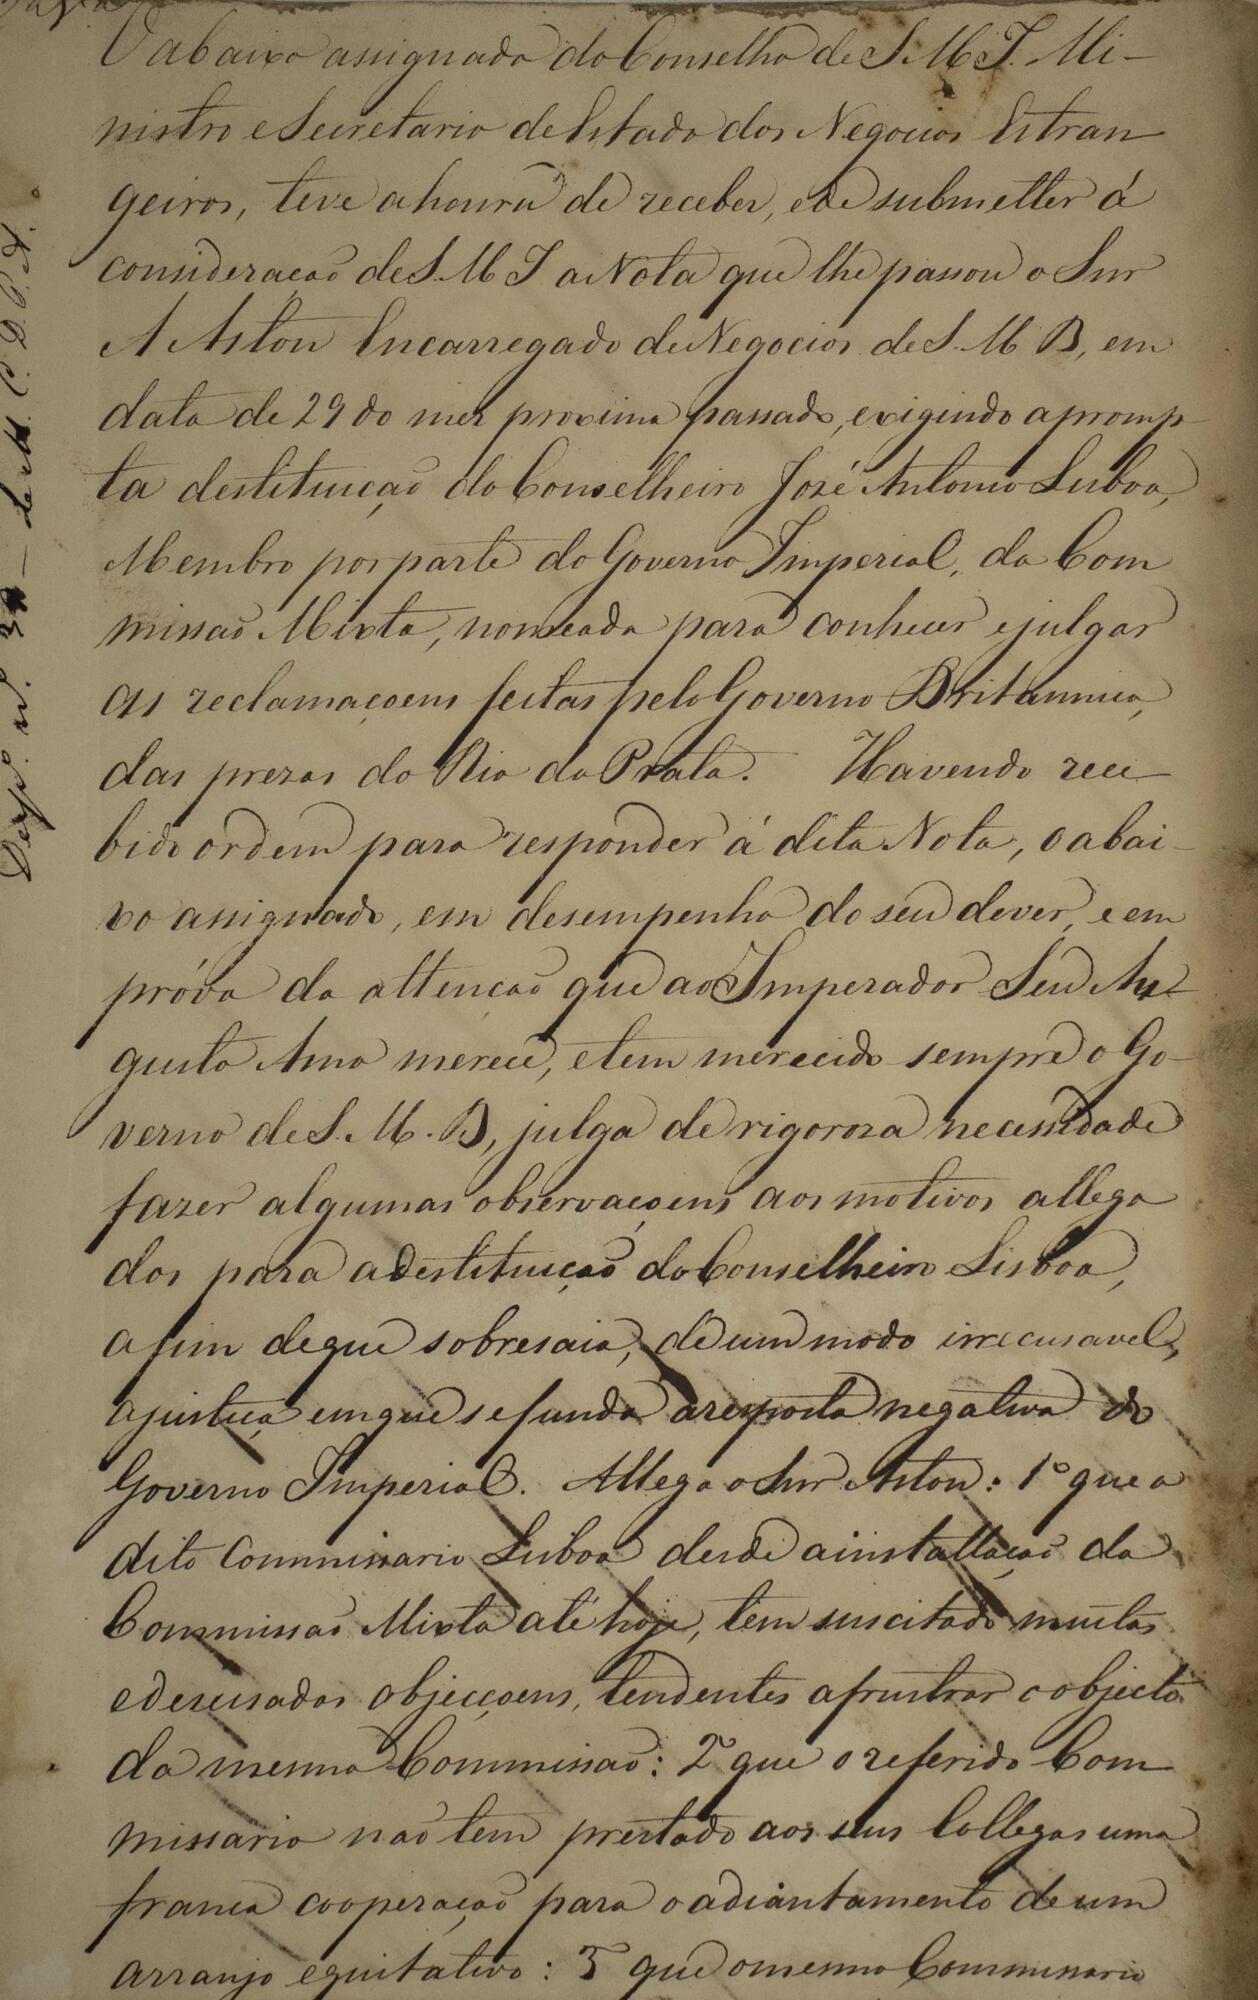 O abaixo assignado do Conselho de S. M. I. Mi-
nistro e Secretario de Estado dos Negocios Estran
geiros, teve a honra de receber, e de submetter á
consideração de S. M. I a Nota que lhe passou o Snr
A Aston Encarregado de Negocios de S. M. B, em
data de 29 do mez proximo passado, exigindo a promp-
ta destituição do Conselheiro José Antonio Lisboa,
Membro por parte do Governo Imperial, da Com
missaõ Mixta, nomeada para conhecer e julgar
as reclamaçoens feitas pelo Governo Britannico,
das prezas do Rio da Prata. Havendo rece-
bido ordem para responder á dita Nota, o abai-
xo assignado, em desempenho do seu dever, e em
próva da attençaõ que ao Imperador Seu Au-
gusto Amo merece, e tem merecido sempre o Go-
verno de S. M. B, julga de rigoroza necessidade
fazer algumas observaçoens aos motivos allega
dos para a destituiçaõ do Conselheiro Lisboa,
a fim de que sobresaia, de um modo irrecusavel,
a justiça em que se funda a resposta negativa do
Governo Imperial. Allega o Snr Aston: 1º que o
dito Commissario Lisboa desde a installaçaõ da
Commissaõ Mixta até hoje, tem suscitado muitas
e desusadas objecçoens, tendentes a frustrar o objecto
da mesma Commissaõ: 2º que o referido Com
missario naõ tem prestado aos seus Collegas uma
franca cooperaçaõ para o adiantamento de um
arranjo equitativo: 3º que o mesmo Commissario